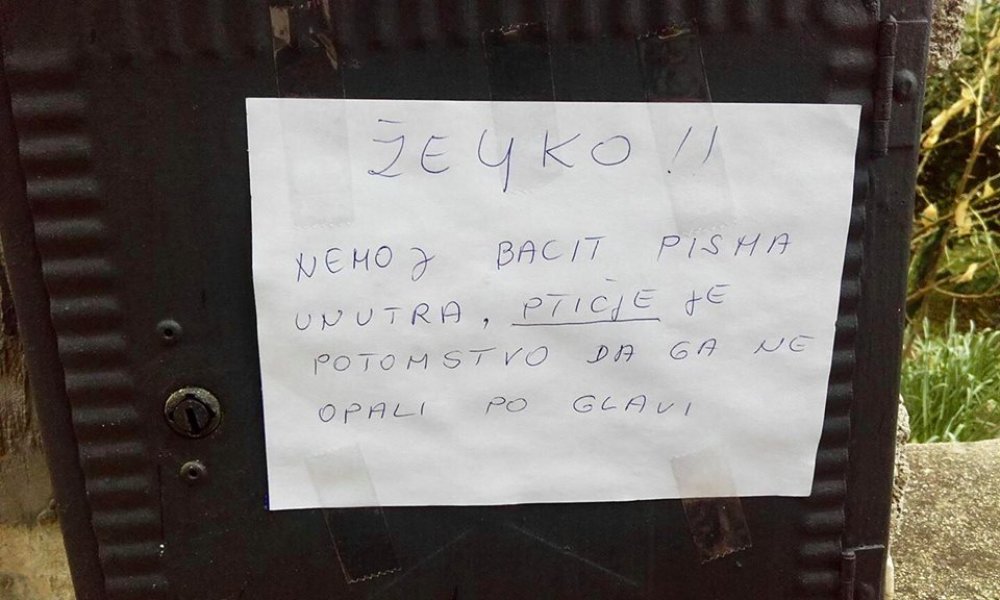 ŽEYKO !!
NEMOJ BACIT PISMA
UNUTRA, PTIČJE JE
POTOMSTVO DA GA NE
OPALI PO GLAVI